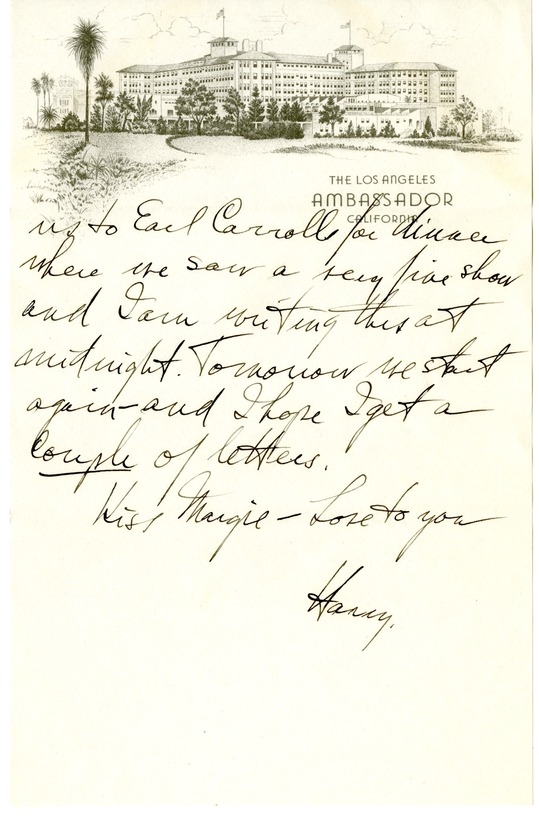 THE LOS ANGELES
AMBASSADOR
CALIFORNIA
us to Earl Carrolls for dinner
where we saw a very fine show
and I am writing this at
midnight. Tomorrow we start
again - and I hope I get a
couple of letters.
Kiss Margie - Love to you
Harry.